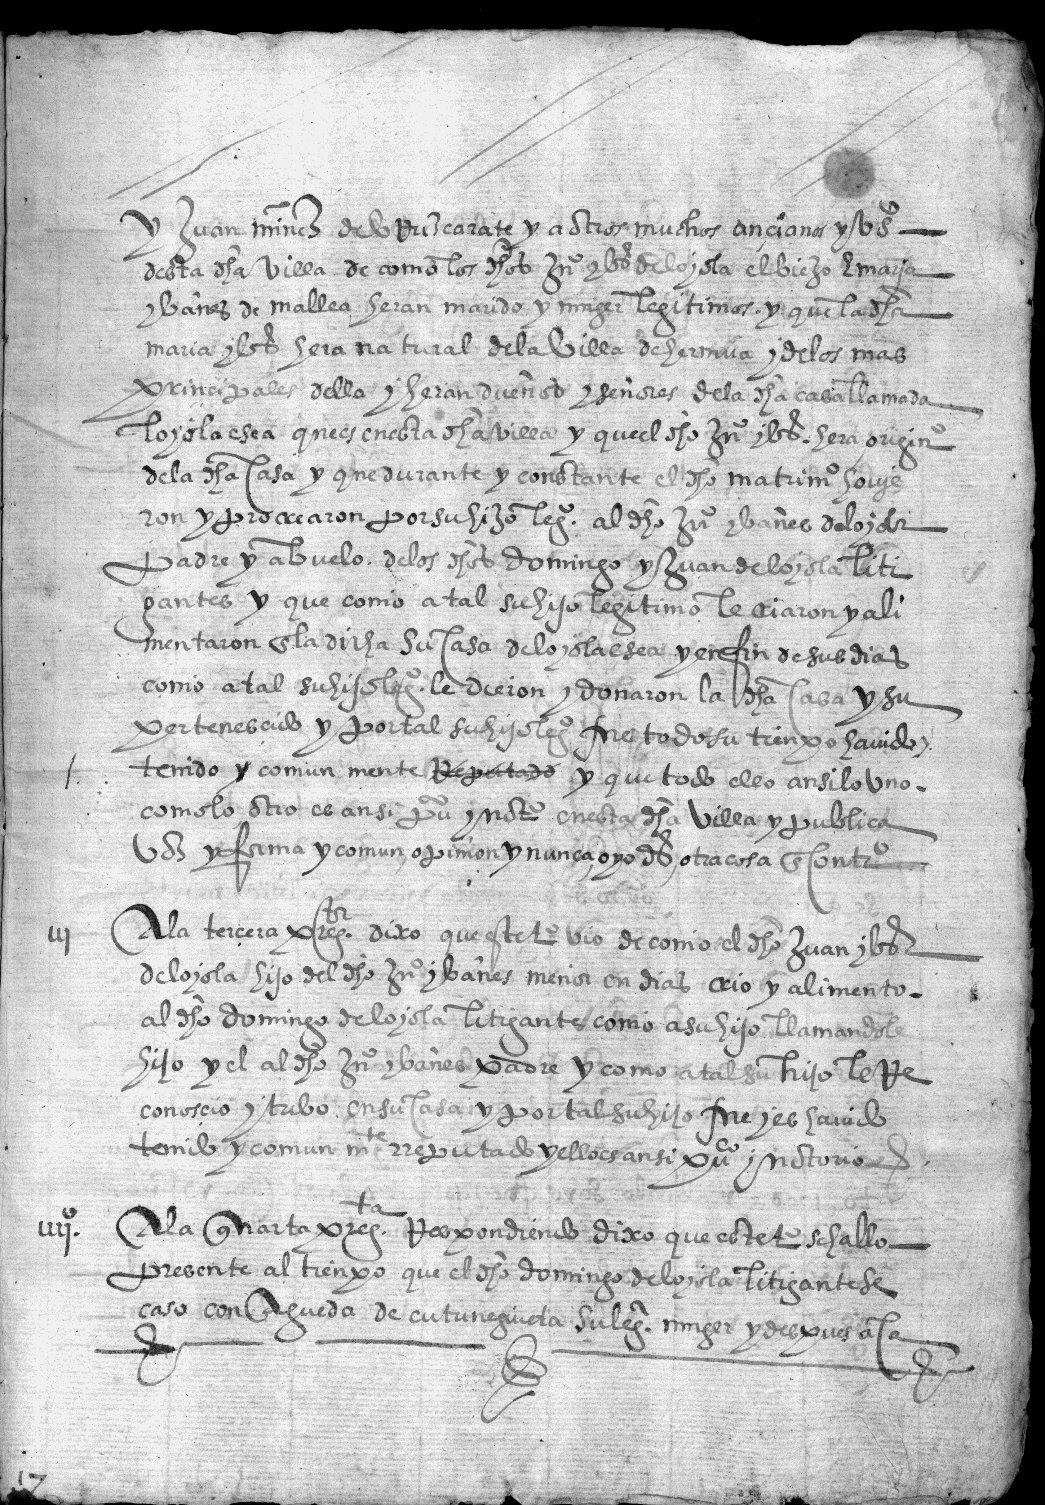 y Juan mĩnez de urruẽcarate y a otros muchos ançianos y vºs
desta dħa villa de como los dħos juº ybs de loyola el biejo e maria
ybañes de mallea heran marido y muger legitimos y que la dħa
maria ybs hera natural de la villa de hermua y de los mas
prinçipales della y heran dueños y señores de la dħa casa llamada
loyola esea que es en esta dħa villa y que el dħo juº ybs hera originº
de la dħa casa y que durante y constante el dħo matrimº hovie
ron y procrearon por su hijo legº al dħo juº ybañes de loyola
padre y abuelo de los dħos domingo y juan de loyola liti
gantes y que como a tal su hijo legitimo le criaron y ali
mentaron en la dicha su casa de loyola esea y en fin de sus dias
como a tal su hijo legº le dieron y donaron la dħa casa y su
pertenesçido y por tal su hijo legº fue todo su tienpo havido y
tenido y comun mente reputado y que todo ello ansi lo uno
como lo otro es ansi puº y notº en esta dħa villa y publica
voz y fama y comun opinion y nunca oyo dẽs otra cosa en contrº
iii A la terçera pregta dixo que este tº vio de como el dħo juan ybs
de loyola hijo del dħo juº ybañes menor en dias crio y alimento
al dħo domingo de loyola litigante como a su hijo llamandole
hijo y el al dħo juº ybañes padre y como a tal su hijo le re
conosçio y tubo en su casa y por tal su hijo fue y es havido
tenido y comun mte rreputado y ello es ansi puco y notorio
iiiiº A la quarta pregta respondiendo dixo que este tº se hallo
presente al tienpo que el dħo domingo de loyola litigante se
caso con Agueda de cutunegieta su legª muger y despues aca
17